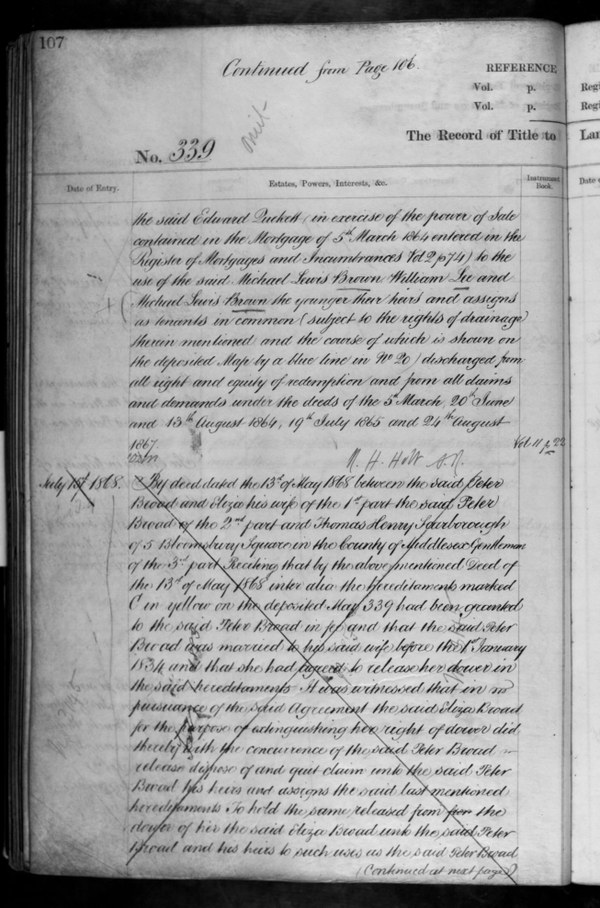 107
Continued from Page 106.
REFERENCE
Vol. p.
Vol. p.
omit
The Record of Title to
No. 339
Date of Entry.
Estates, Powers, Interests, &c.
Instrument Book.
the said Edward Puckett (in exercise of the power of Sale
contained in the Mortgage of 5th March 1864 entered in the
Register of Mortgages and Incumbrances Vol 2 p74) to the
use of the said Michael Lewis Brown William Lee and
Michael Lewis Brown the younger their heirs and assigns
as tenants in common (subject to the rights of drainage
therein mentioned and the course of which is shown on
the deposited Map by a blue line in No 20) discharged from
all right and equity of redemption and from all claims
and demands under the deeds of the 5th March, 20th June
and 13th August 1864, 19th July 1865 and 24th August
1867.
R. H. Holt A.R.
Vol 11 p 22
July 1868.
By deed dated the 13th of May 1868 between the said Peter
Broad and Eliza his wife of the 1st part the said Peter
Broad of the 2nd part and Thomas Henry Scarborough
of 5 Bloomsbury Square in the County of Middlesex Gentleman
of the 3rd part Reciting that by the above mentioned Deed of
the 13th of May 1868 inter alia the hereditaments marked
C in yellow on the deposited Map 339 had been granted
to the said Peter Broad in fee and that the said Peter
Broad was married to his said wife before the 1st January
1834 and that she had agreed to release her dower in
the said hereditaments It was witnessed that in
pursuance of the said Agreement the said Eliza Broad
for the purpose of extinguishing her right of dower did
thereby with the concurrence of the said Peter Broad
release dispose of and quit claim unto the said Peter
Broad his heirs and assigns the said last mentioned
hereditaments To hold the same released from the
dower of her the said Eliza Broad unto the said Peter
Broad and his heirs to such uses as the said Peter Broad
(Continued at next page)
Regi
Regi
Lan
Date